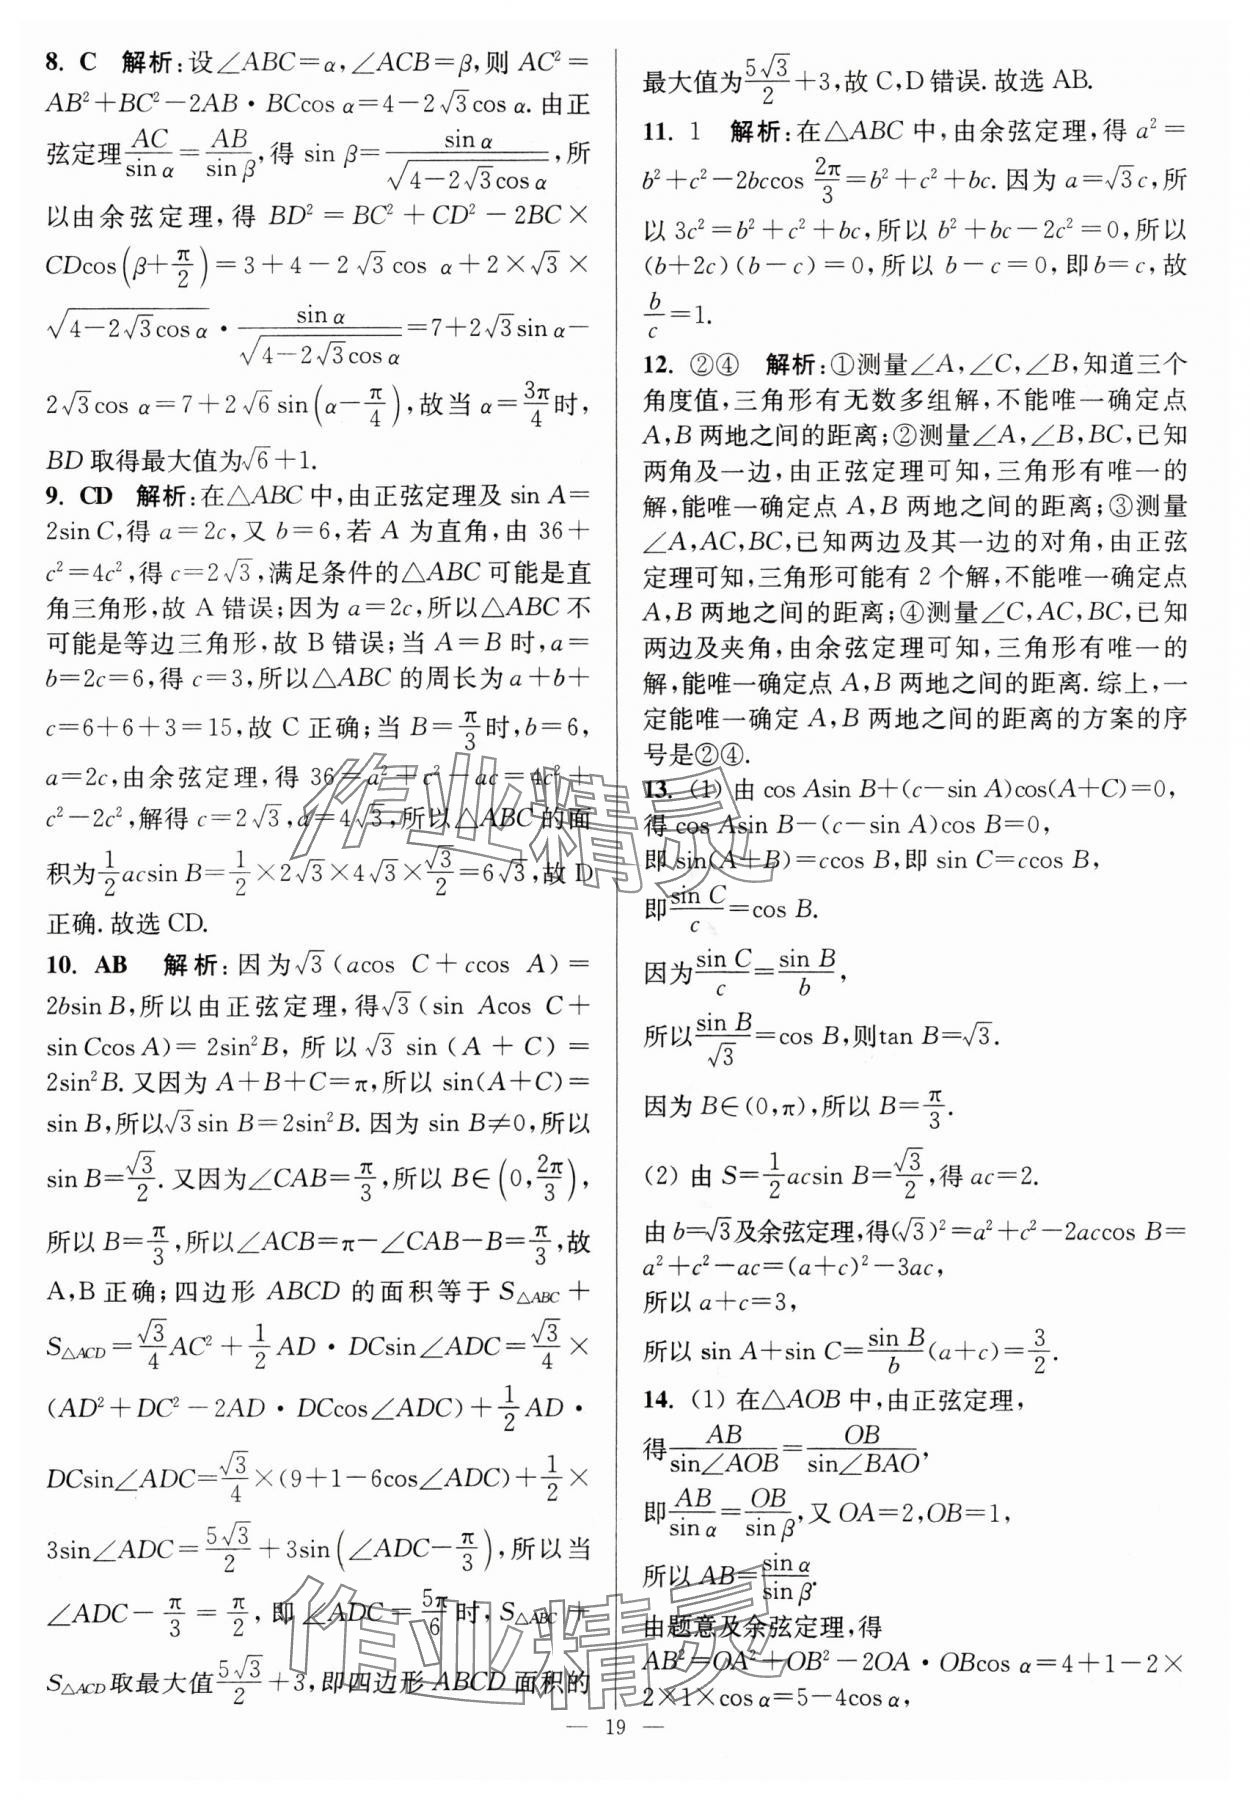 8. C 解析:设∠ABC=α,∠ACB=β,则 AC²=
AB²+BC²-2AB·BCcos α=4-2√3cos α.由正
弦定理AC/sin α=AB/sin β,得 sin β=sin α/√(4-2√3cos α),所
以由余弦定理,得 BD²=BC²+CD²-2BC×
CDcos(β+π/2)=3+4-2√3cos α+2×√3×
√(4-2√3cos α)·sin α/√(4-2√3cos α)=7+2√3sin α-
2√3cos α=7+2√6sin(α-π/4),故当 α=3π/4时,
BD 取得最大值为√6+1.
9. CD 解析:在△ABC 中,由正弦定理及 sin A=
2sin C,得 a=2c,又 b=6,若 A 为直角,由 36+
c²=4c²,得 c=2√3,满足条件的△ABC 可能是直
角三角形,故 A 错误;因为 a=2c,所以△ABC 不
可能是等边三角形,故 B 错误;当 A=B 时,a=
b=2c=6,得 c=3,所以△ABC 的周长为 a+b+
c=6+6+3=15,故 C 正确;当 B=π/3时,b=6,
a=2c,由余弦定理,得 36=a²+c²-ac=4c²+
c²-2c²,解得 c=2√3,a=4√3,所以△ABC 的面
积为1/2acsin B=1/2×2√3×4√3×√3/2=6√3,故 D
正确.故选 CD.
10. AB 解析:因为√3(acos C+ccos A)=
2bsin B,所以由正弦定理,得√3(sin Acos C+
sin Ccos A)=2sin²B,所以√3 sin(A+C)=
2sin²B.又因为 A+B+C=π,所以 sin(A+C)=
sin B,所以√3sin B=2sin²B.因为 sin B≠0,所以
sin B=√3/2.又因为∠CAB=π/3,所以 B∈(0,2π/3),
所以 B=π/3,所以∠ACB=π-∠CAB-B=π/3,故
A,B 正确;四边形 ABCD 的面积等于 S△ABC+
S△ACD=√3/4AC²+1/2AD·DCsin∠ADC=√3/4×
(AD²+DC²-2AD·DCcos∠ADC)+1/2AD·
DCsin∠ADC=√3/4×(9+1-6cos∠ADC)+1/2×
3sin∠ADC=5√3/2+3sin(∠ADC-π/3),所以当
∠ADC-π/3=π/2,即∠ADC=5π/6时,S△ABC+
S△ACD取最大值5√3/2+3,即四边形 ABCD 面积的
最大值为5√3/2+3,故 C,D 错误.故选 AB.
11. 1 解析:在△ABC 中,由余弦定理,得 a²=
b²+c²-2bccos 2π/3=b²+c²+bc.因为 a=√3c,所
以 3c²=b²+c²+bc,所以 b²+bc-2c²=0,所以
(b+2c)(b-c)=0,所以 b-c=0,即b=c,故
b/c=1.
12. ②④ 解析:①测量∠A,∠C,∠B,知道三个
角度值,三角形有无数多组解,不能唯一确定点
A,B 两地之间的距离;②测量∠A,∠B,BC,已知
两角及一边,由正弦定理可知,三角形有唯一的
解,能唯一确定点 A,B 两地之间的距离;③测量
∠A,AC,BC,已知两边及其一边的对角,由正弦
定理可知,三角形可能有 2 个解,不能唯一确定点
A,B 两地之间的距离;④测量∠C,AC,BC,已知
两边及夹角,由余弦定理可知,三角形有唯一的
解,能唯一确定点 A,B 两地之间的距离.综上,一
定能唯一确定 A,B 两地之间的距离的方案的序
号是②④.
13. (1) 由 cos Asin B+(c-sin A)cos(A+C)=0,
得 cos Asin B-(c-sin A)cos B=0,
即 sin(A+B)=ccos B,即 sin C=ccos B,
即sin C/c=cos B.
因为sin C/c=sin B/b,
所以sin B/√3=cos B,则tan B=√3.
因为 B∈(0,π),所以 B=π/3.
(2) 由 S=1/2acsin B=√3/2,得 ac=2.
由 b=√3及余弦定理,得(√3)²=a²+c²-2accos B=
a²+c²-ac=(a+c)²-3ac,
所以 a+c=3,
所以 sin A+sin C=sin B/b(a+c)=3/2.
14. (1) 在△AOB 中,由正弦定理,
得AB/sin∠AOB=OB/sin∠BAO,
即AB/sin α=OB/sin β,又 OA=2,OB=1,
所以 AB=sin α/sin β.
由题意及余弦定理,得
AB²=OA²+OB²-2OA·OBcos α=4+1-2×
2×1×cos α=5-4cos α,
— 19 —
作业精灵
作业精灵